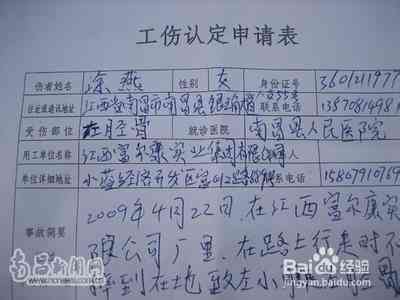 工伤认定申请表
伤者姓名 涂燕 性别 女 身份证号 3601211977
住址或通讯地址 江西省南昌市南昌县 联系电话 1387081498
受伤部位 左胫骨 就诊医院 南昌县人民医院
用工单位名称 江西富尔康实业集团有限公司
单位详细地址 小蓝经济开发区富山 联系电话 15867910769
事故简要
2009年4月22日,在江西富尔康实
限公司厂里,在路上行走时不
摔到在地 致左小
南昌新闻网
Baidu百度经验